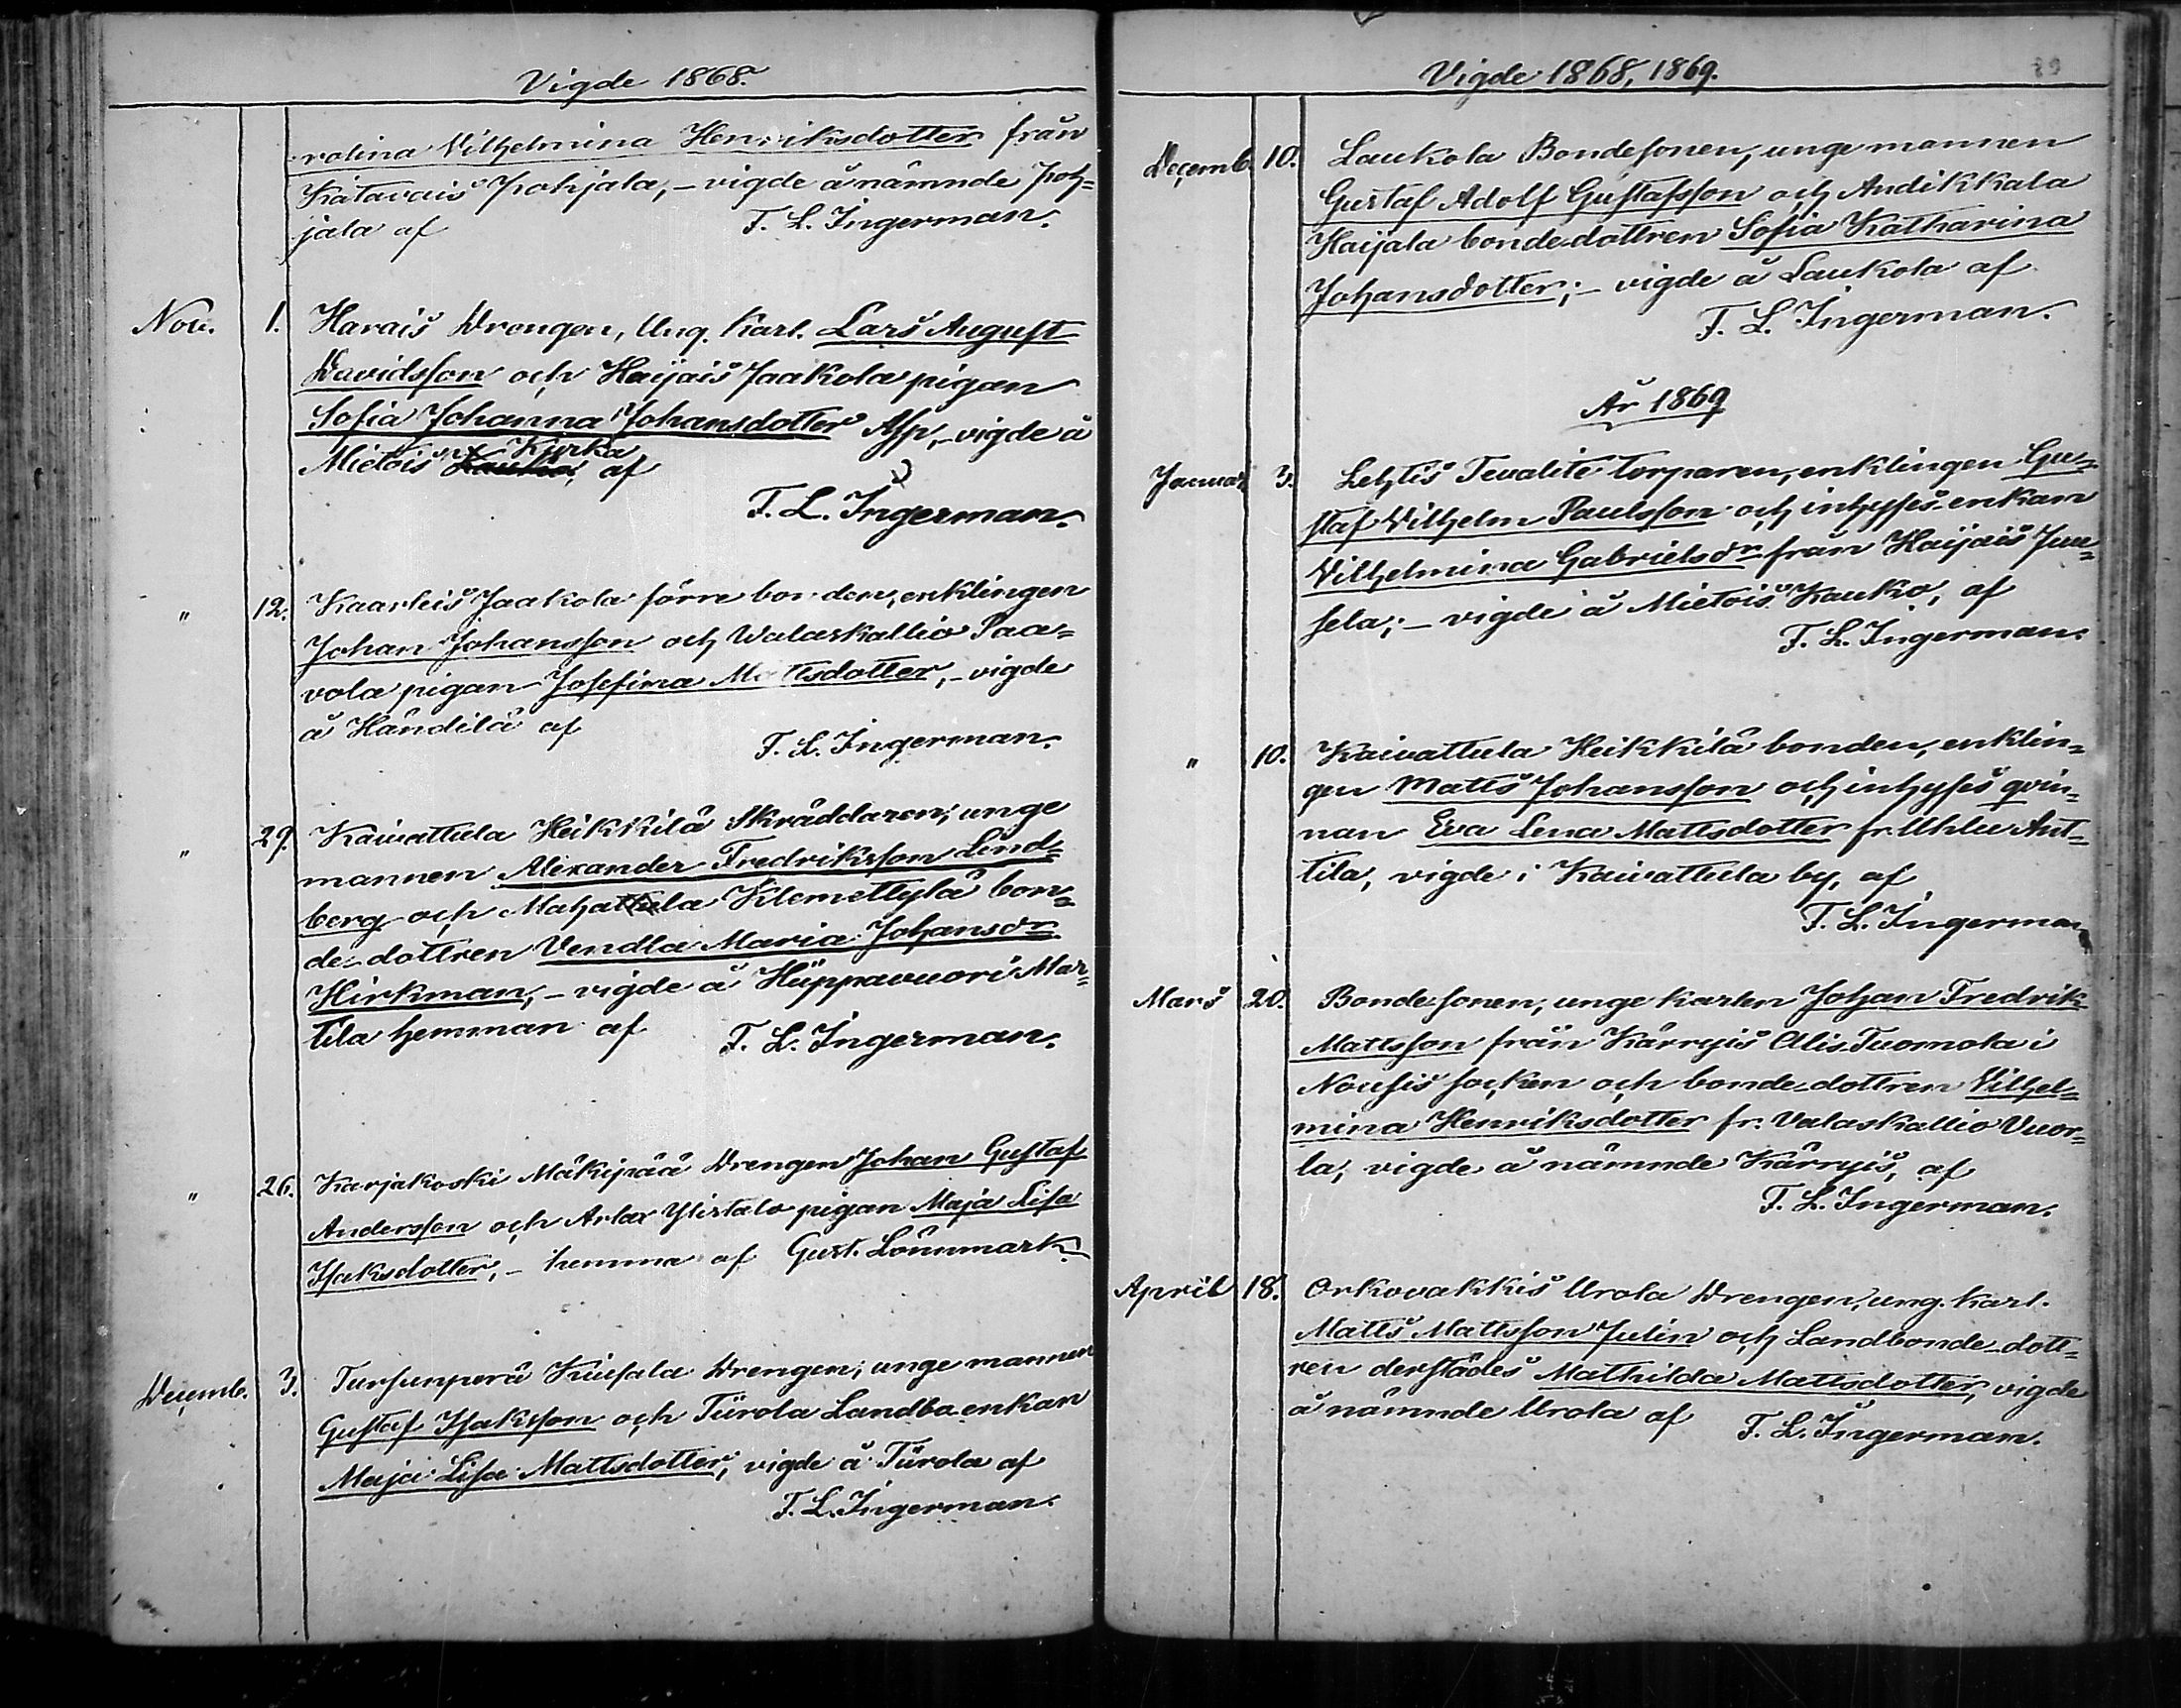 Vigde 1868.
rolina Vilhelmina Henriksdotter från
Katavais Pohjala, – vigde å nämnde Poh=
jala af
F. L. Ingerman.
Nov. 1. Harais Drengen, Ung. Karl. Lars August
Davidsson och Haijais Jaakola pigan
Sofia Johanna Johansdotter Asp, – vigde å
Mietois Kurka af
F. L. Ingerman.
" 12. Kaarleis Jaakola förre bonden, enklingen
Johan Johansson och Walaskallio Paa=
vola pigan Josefina Mattsdotter, – vigde
å Händilä af
F. L. Ingerman.
" 29. Kaivattula Heikkilä Skräddaren, unge
mannen Alexander Fredriksson Lind=
berg och Mahattula Klemettylä bon=
de-dottren Vendla Maria Johansdr
Hirkman, – vigde å Hüppavuori Mar=
tila hemman af
F. L. Ingerman.
" 26. Karjakoski Mäkipää Drengen Johan Gustaf
Andersson och Arlax Ylistalo pigan Maja Lisa
Isaksdotter, – hemma af Gust. Lönnmark.
Decemb. 3. Tursunperä Kiusala Drengen, unge mannen
Gustaf Isaksson och Türola Landbo enkan
Maja Lisa Mattsdotter, vigde å Türola af
F. L. Ingerman.
Vigde 1868, 1869.
Decemb. 10. Laukola Bondesonen, unge mannen
Gustaf Adolf Gustafsson och Andikkala
Haijala bondedottren Sofia Katharina
Johansdotter; – vigde å Laukola af
F. L. Ingerman.
År 1869
Januar. 3. Lehtis Tevalite torparen, enklingen Gu=
staf Vilhelm Paulsson och inhyses-enkan
Vilhelmina Gabrielsdr från Haijais Juu=
sela; – vigde å Mietois Kauko, af
F. L. Ingerman.
" 10. Kaivattula Heikkilä bonden, enklin=
gen Matts Johansson och inhyses qvin=
nan Eva Lena Mattsdotter fr. Uhlu Ant=
tila, vigde i Kaivattula by, af
F. L. Ingerman
Mars 20. Bondesonen, unge karlen Johan Fredrik
Mattsson från Kärryis Alis-Tuomola i
Nousis socken och bonde-dottren Vilhel=
mina Henriksdotter fr. Valaskallio Vuor=
la, vigde å nämnde Kärryis, af
F. L. Ingerman.
April 18. Orkovakkis Urola Drengen, ung. Karl.
Matts Mattsson Julin och Landbonde-dott=
ren derstädes Mathilda Mattsdotter, vigde
å nämnde Urola af
F. L. Ingerman.